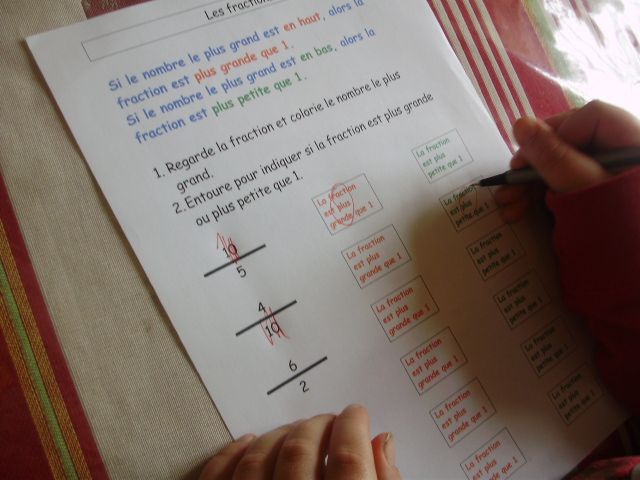 Les fractions
Si le nombre le plus grand est en haut, alors la
fraction est plus grande que 1.
Si le nombre le plus grand est en bas, alors la
fraction est plus petite que 1.
1. Regarde la fraction et colorie le nombre le plus
grand.
2. Entoure pour indiquer si la fraction est plus grande
ou plus petite que 1.
10
5
La fraction
est plus
grande que 1
La fraction
est plus
petite que 1
4
10
La fraction
est plus
grande que 1
La fraction
est plus
petite que 1
6
2
La fraction
est plus
grande que 1
La fraction
est plus
petite que 1
La fraction
est plus
grande que 1
La fraction
est plus
petite que 1
La fraction
est plus
grande que 1
La fraction
est plus
petite que 1
La fraction
est plus
grande que 1
La fraction
est plus
petite que 1